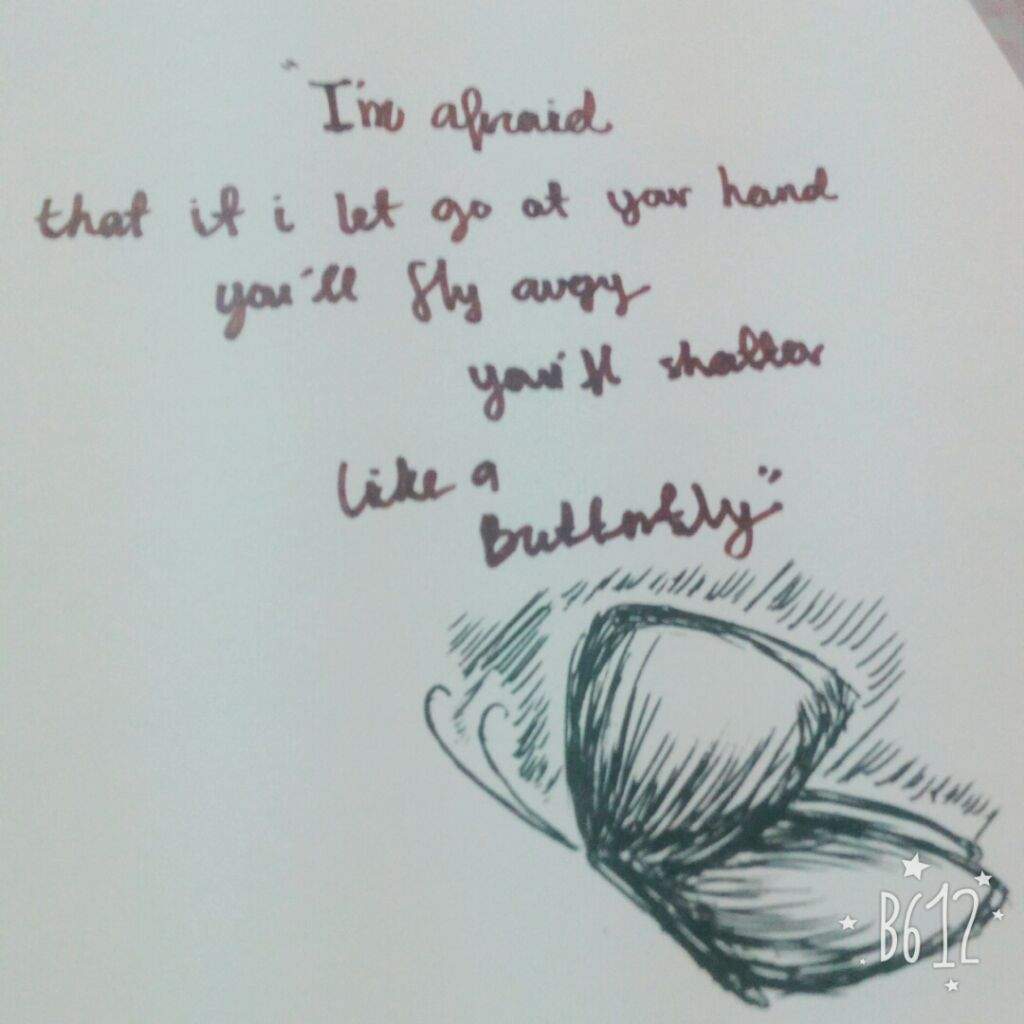 "I'm afraid
that if i let go at your hand
you'll fly away
you'll shatter
like a
Butterfly"
B612